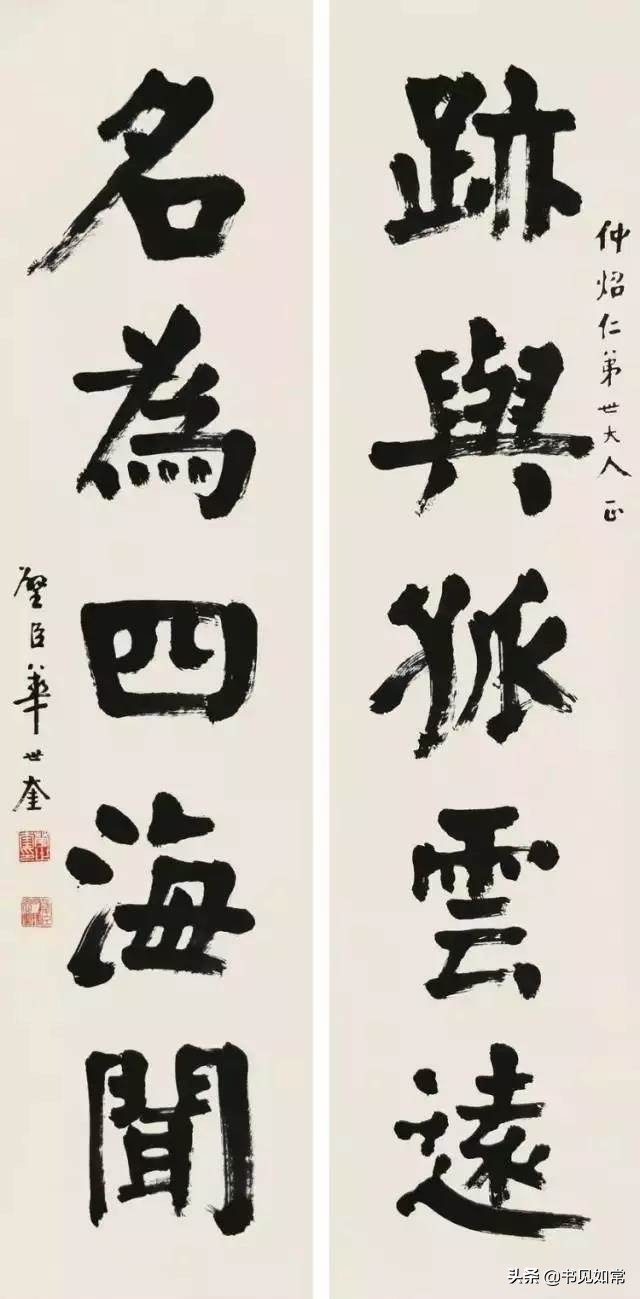 仲炤仁弟世大人正
跡與孤雲遠
名為四海聞
璧臣華世奎
头条 @书见如常